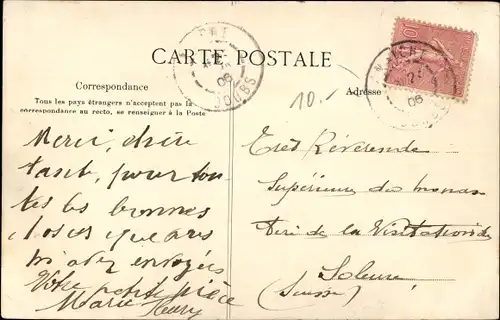 CARTE POSTALE
Correspondance
Tous les pays étrangers n'acceptent pas la
correspondance au recto, se renseigner à la Poste
Adresse
10.-
06
DOUBS
Merci, chère
tante, pour tou
tes les bonnes
choses que vous
m'avez envoyées
Votre petite nièce
Marie
Très Révérende
Supérieure du monas
tère de la Visitation de
Soleure
(Suisse)